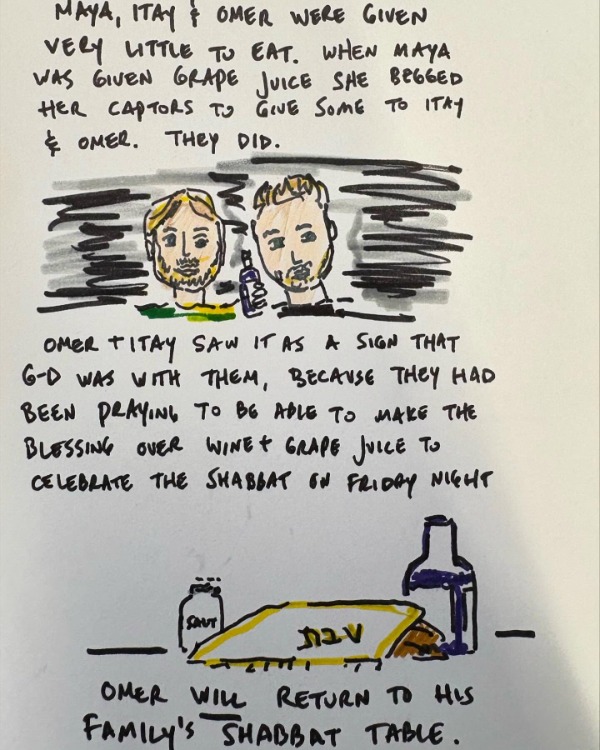 MAYA, ITAY & OMER WERE GIVEN
VERY LITTLE TO EAT. WHEN MAYA
WAS GIVEN GRAPE JUICE SHE BEGGED
HER CAPTORS TO GIVE SOME TO ITAY
& OMER. THEY DID.
OMER + ITAY SAW IT AS A SIGN THAT
G-D WAS WITH THEM, BECAUSE THEY HAD
BEEN PRAYING TO BE ABLE TO MAKE THE
BLESSING OVER WINE + GRAPE JUICE TO
CELEBRATE THE SHABBAT ON FRIDAY NIGHT
SALT
OMER WILL RETURN TO HIS
FAMILY'S SHABBAT TABLE.